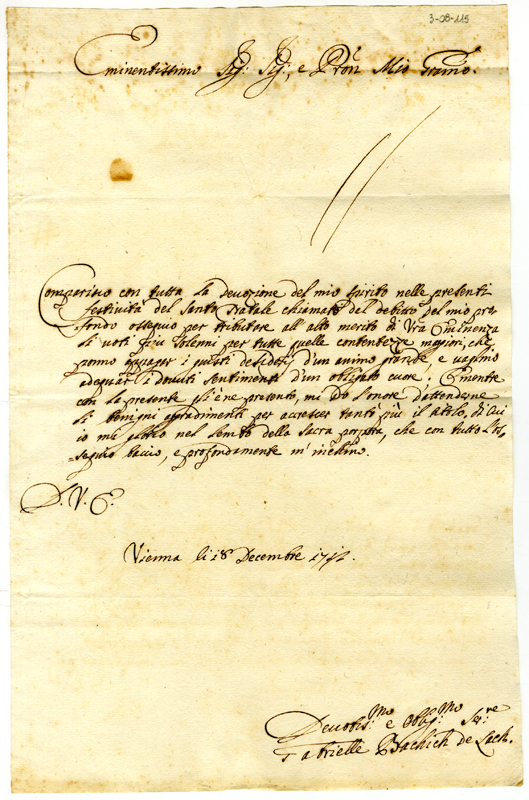 3-08-115
Eminentissimo Sig: Sig:, e Pron Mio
Comparisco con tutta la devozione del mio spirito nelle presenti
festività del Santo Natale chiamato del debito del mio pro
fondo ossequio per tributare all'alto merito di Vra Eminenza
li voti più solenni per tutte quelle contentezze magiori, che
ponno appagar i giusti desiderj d'un animo grande, e vagliono
adequar i dovuti sentimenti d'un obligato cuore; E mentre
con la presente gliene presento, mi do l'onore d'attenderne
li benigni agradimenti per accrescer tanti più il di cui
io mi nel lembo della sacra porpora, che con tutto l'os
=sequio baccio, e profondamente m'inchino.
D. V. E.
Vienna li 18 Decembre
Devotis:mo e Obbg:mo Se:re
Gabrielle Bachich de Lach.